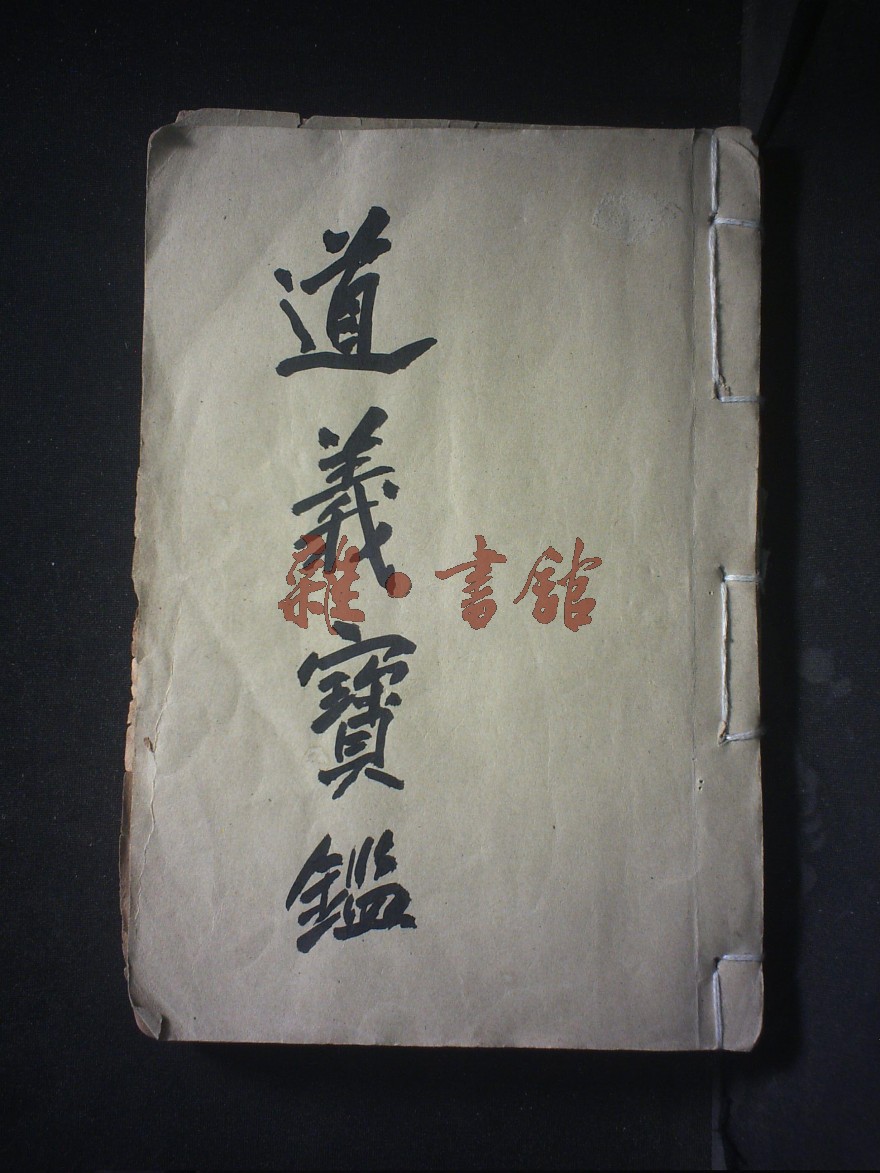 道義寶鑑
雜·書館